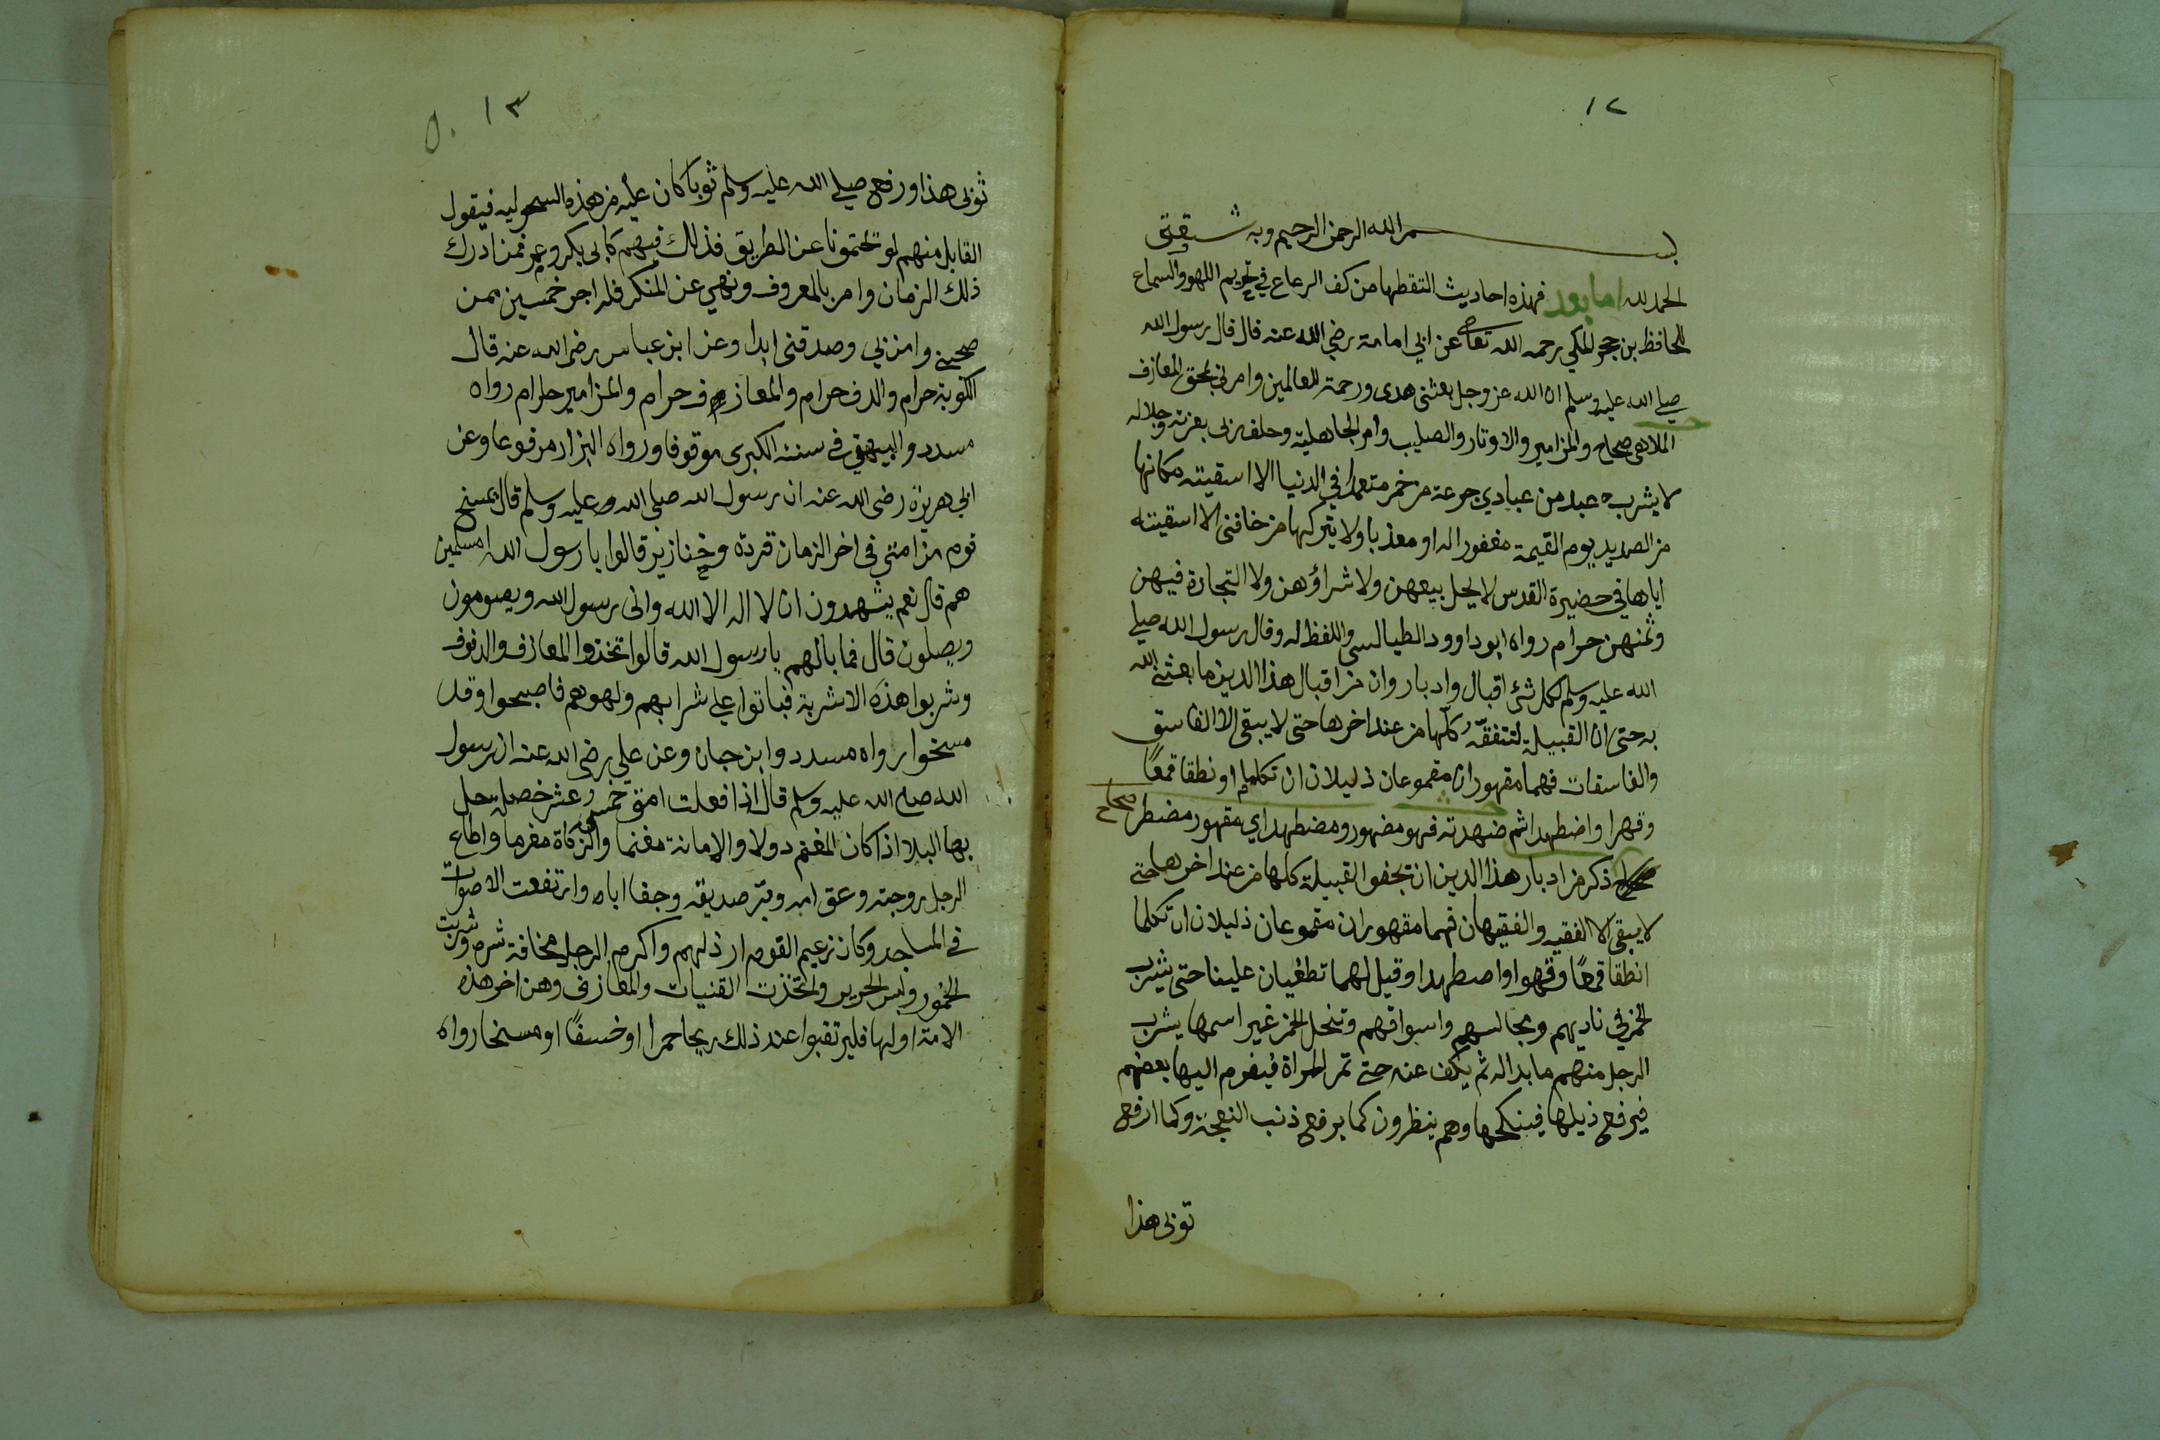 ١٢
بسم الله الرحمن الرحيم وبه ثقتي
الحمد لله اما بعد فهذه احاديث التقطها من كف الرعاع في تحريم اللهو والسماع
للحافظ بن حجر المكي رحمه الله تعالى عن ابي امامة رضي الله عنه قال قال رسول الله
صلي الله عليه وسلم ان الله عز وجل بعثني هدى ورحمة للعالمين وامرني بمحق المعازف
الملاهي صحاح والمزامير والاوتار والصليب وامر الجاهلية وحلف ربي بعزته وجلاله
لا يشرب عبد من عبادي جرعة من خمر متعمدا في الدنيا الا اسقيته مكانها
من الصديد يوم القيمة مغفورا له او معذبا ولا يتركها من خافني الا اسقيته
اياها في حضيرة القدس لا يحل بيعهن ولا شراؤهن ولا التجارة فيهن
وثمنهن حرام رواه ابو داوود الطيالسي واللفظ له وقال رسول الله صلي
الله عليه وسلم لكل شئ اقبال وادبار وان من اقبال هذا الدين ما بعثني الله
به حتى ان القبيلة لتتفقه كلها من عند اخرها حتى لا يبقى الا الفاسق
والفاسقات فهما مقهوران مقموعان ذليلان ان تكلما او نطقا قمعا
وقهرا واضطهدا ثم ضهدته فهو مضهور ومضطهد اي مقهور مضطر صحاح
ذكر من ادبار هذا الدين ان تجفوا القبيلة كلها من عند اخرها حتى
لا يبقى الا الفقيه والفقيهان فهما مقهوران مقموعان ذليلان ان تكلما
انطقا قمعا وقهوا واضطهدا وقيل لهما تطغيان علينا حتى يشرب
الخمر في ناديهم ومجالسهم واسواقهم وتنحل الخمر غير اسمها يشرب
الرجل منهم ما بدا له ثم يكف عنه حتى تمر المراة فيقوم اليها بعضهم
فيرفع ذيلها فينكحها وهم ينظرون كما يرفع ذنب النعجة وكما ارفع
ثوبى هذا
١٣
ثوبى هذا ورفع صلي الله عليه وسلم ثوبا كان عليه من هذه السحولية فيقول
القايل منهم لو نحيتمونا عن الطريق فذلك فيهم كابى بكر وعمر فمن ادرك
ذلك الزمان وامر بالمعروف ونهي عن المنكر فله اجر خمسين ممن
صحبني وامن بي وصدقنى ابدا وعن ابن عباس رضى الله عنه قال
الكوبة حرام والدف حرام والمعازف حرام والمزامير حرام رواه
مسدد والبيهقي في سننه الكبرى موقوفا ورواه البزار مرفوعا وعن
ابي هريرة رضى الله عنه ان رسول الله صلى الله عليه وسلم قال يمسخ
قوم من امتي في اخر الزمان قردة وخنازير قالوا يا رسول الله امسلمين
هم قال نعم يشهدون ان لا اله الا الله وانى رسول الله ويصومون
ويصلون قال فما بالهم يا رسول الله قالوا اتخذوا المعازف والدفوف
وشربوا هذه الاشربة فباتوا علي شرابهم ولهوهم فاصبحوا وقد
مسخوا رواه مسدد وابن حبان وعن علي رضى الله عنه ان رسول
الله صلي الله عليه وسلم قال اذا فعلت امتي خمس عشر خصلة حل
بها البلا اذا كان المغنم دولا والامانة مغنما والزكاة مغرما واطاع
الرجل زوجته وعق امه وبر صديقه وجفا اباه وارتفعت الاصوات
في المساجد وكان زعيم القوم ارذلهم واكرم الرجل مخافة شره وشربت
الخمور ولبس الحرير واتخذت القنيات والمعازف ولعن اخر هذه
الامة اولها فليرتقبوا عند ذلك ريحا حمرا او خسفا او مسخا رواه